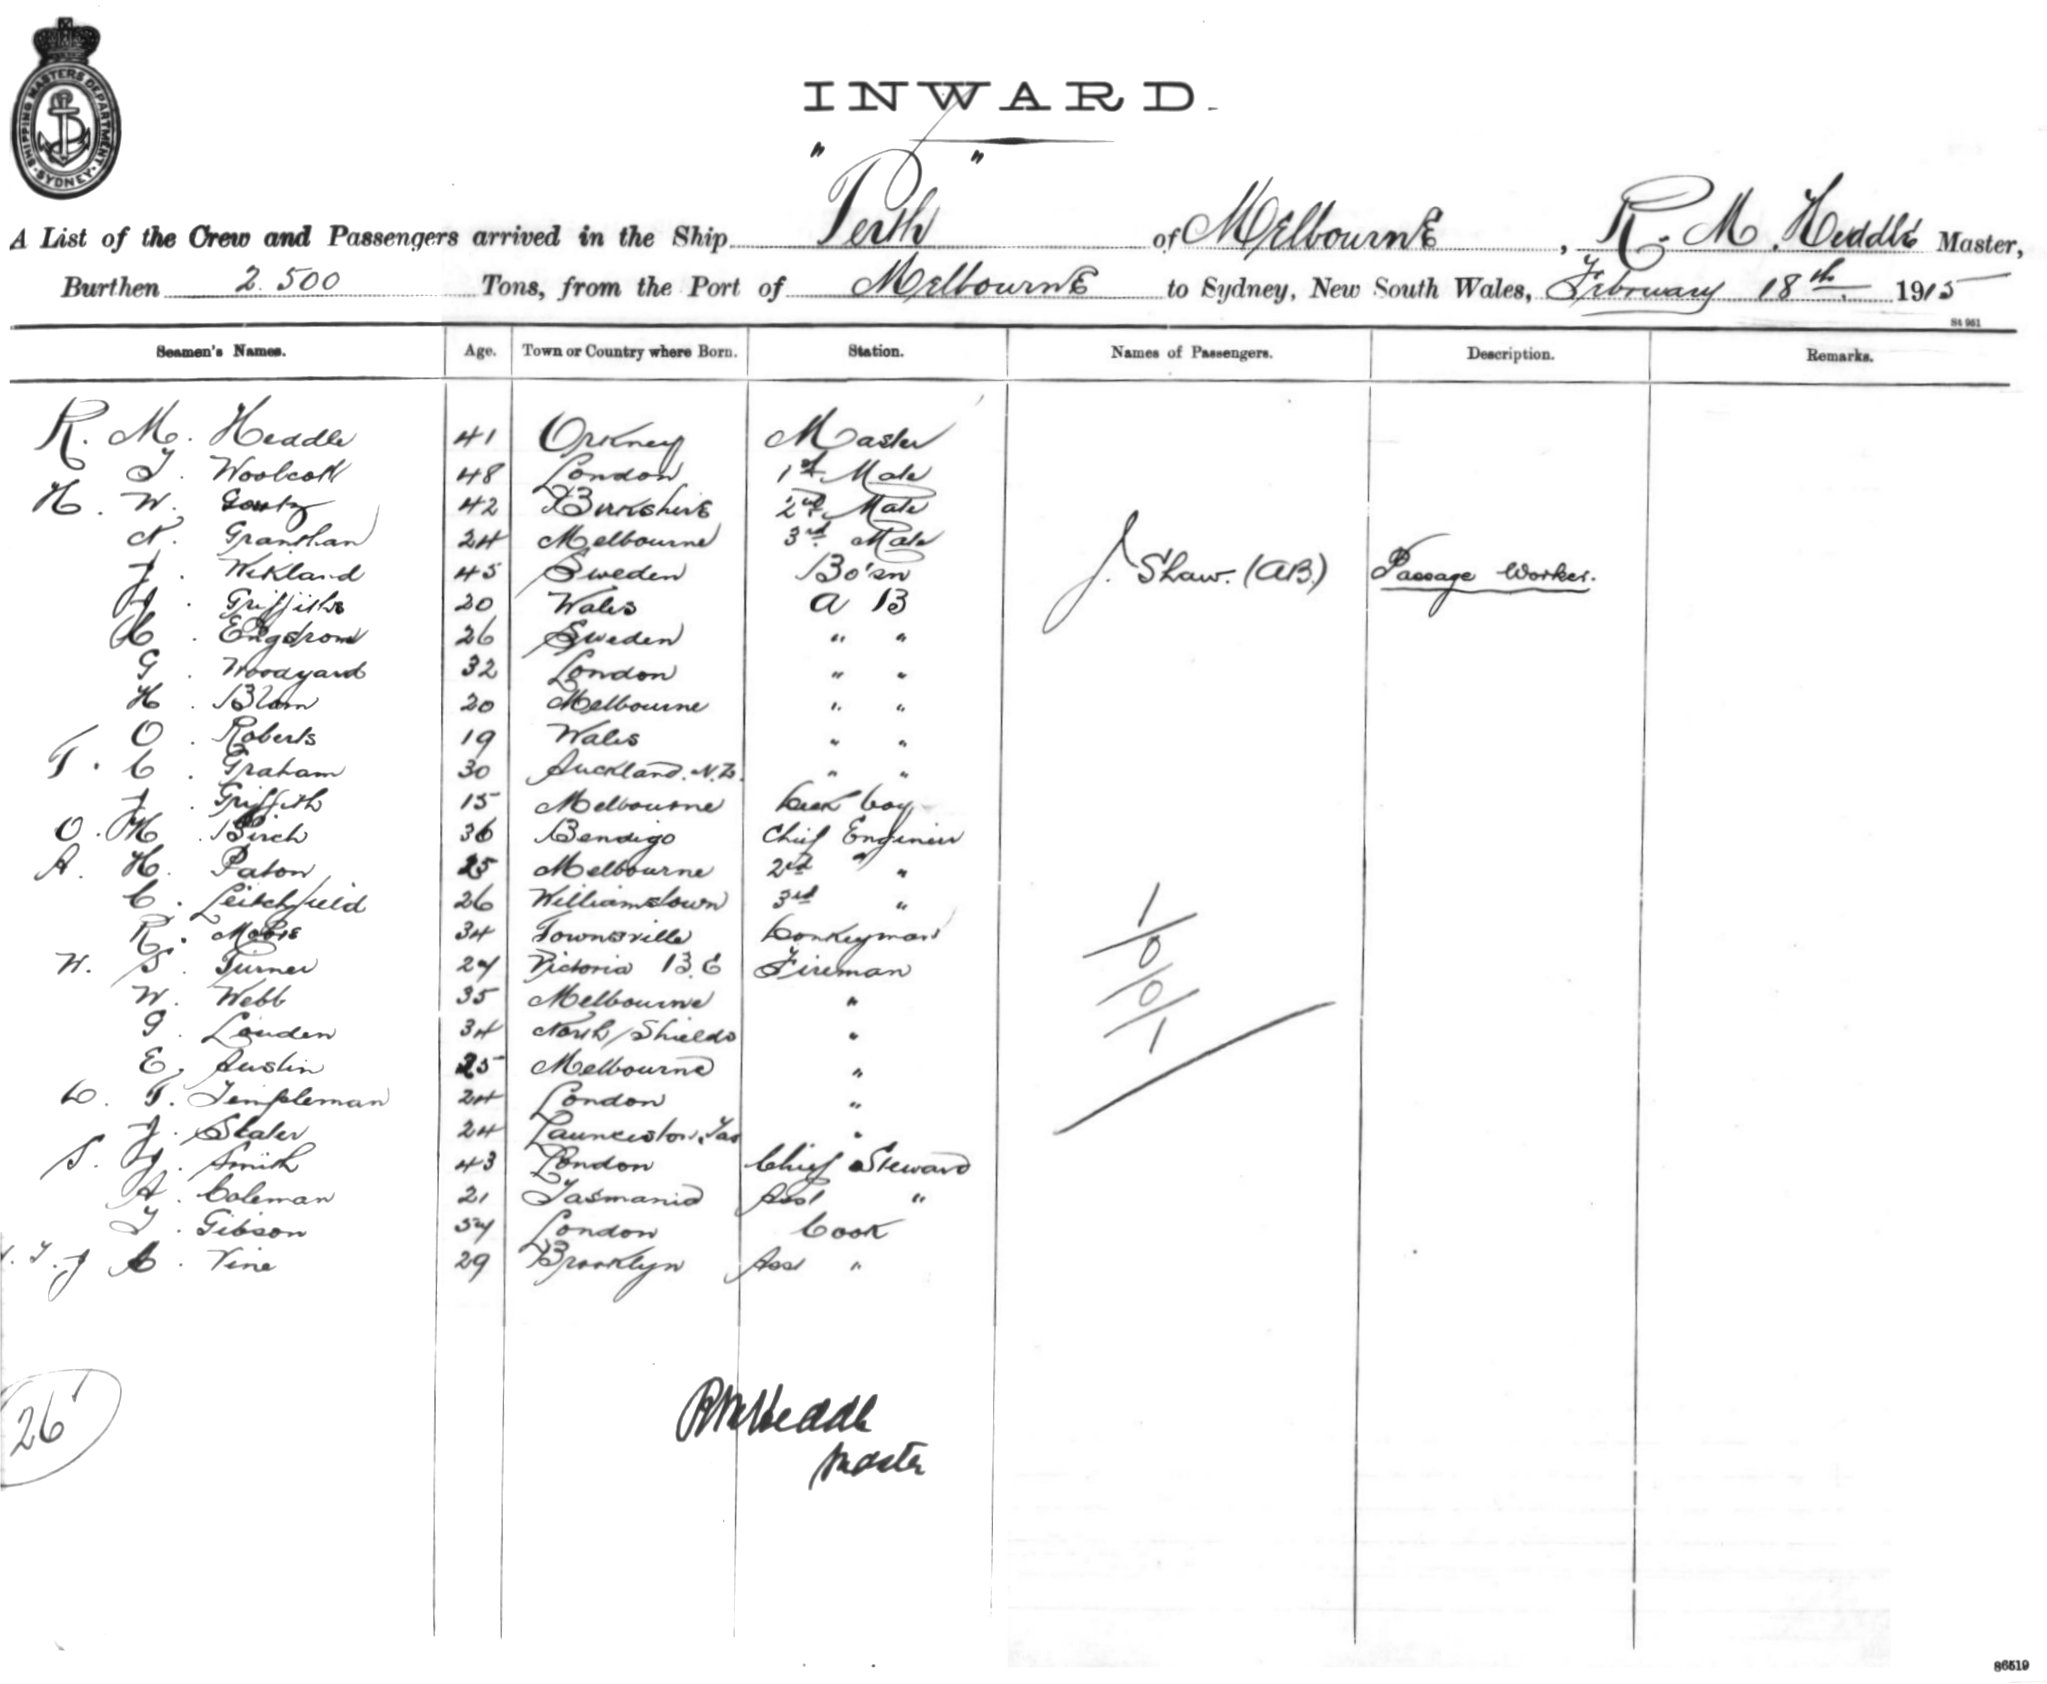 SHIPPING MASTERS DEPARTMENT. SYDNEY
INWARD.
" "
A List of the Crew and Passengers arrived in the Ship Perth of Melbourne, R. M. Heddle Master,
Burthen 2.500 Tons, from the Port of Melbourne to Sydney, New South Wales, February 18th. 1915
St 951
Seamen's Names. Age. Town or Country where Born. Station. Names of Passengers. Description. Remarks.
R. M. Heddle 41 Orkney Master
J. Woolcott 48 London 1st Mate
H. W. 42 Berkshire 2nd Mate
N. Granthan 24 Melbourne 3rd Mate
J. Wikland 45 Sweden Bo'sn J. Shaw. (AB.) Passage Worker.
J. Griffiths 20 Wales A B
Engstrom 26 Sweden " "
G. Woodyard 32 London " "
H. Blom 20 Melbourne " "
O. Roberts 19 Wales " "
T. C. Graham 30 Auckland. N.Z. " "
J. Griffith 15 Melbourne Deck boy
O. H. Birch 36 Bendigo Chief Engineer
A. H. Paton 25 Melbourne 2nd "
C. Leitchfield 26 Williamstown 3rd "
R. 34 Townsville Donkeyman
W. S. Turner 27 Victoria B.C Fireman
W. Webb 35 Melbourne "
G. Louden 34 North Shields "
E. Austin Melbourne "
T. Templeman 24 London "
J. Slater 24 Launceston, Tas "
S. J. Smith 43 London Chief Steward
A. Coleman 21 Tasmania Asst "
J. Gibson 57 London Cook
Vine 29 Brooklyn Asst "
1
0
0
1
26
RM Heddle
Master
86519